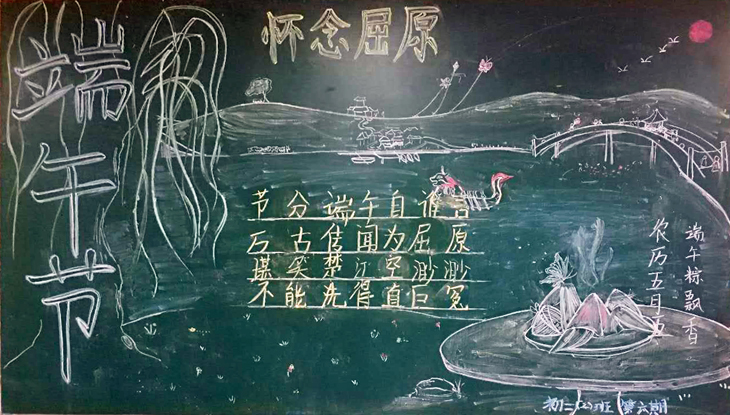 端午节
怀念屈原
节分端午自谁言
万古传闻为屈原
堪笑楚江空渺渺
不能洗得直臣冤
端午粽飘香
农历五月五
初二(2)班 第六期